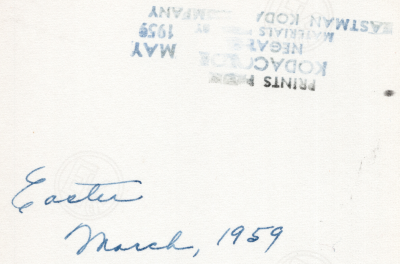 PRINTS
KODACOLOR
NEGA
MATERIALS BY
EASTMAN KODA MPANY
MAY
1959
Easter
March, 1959